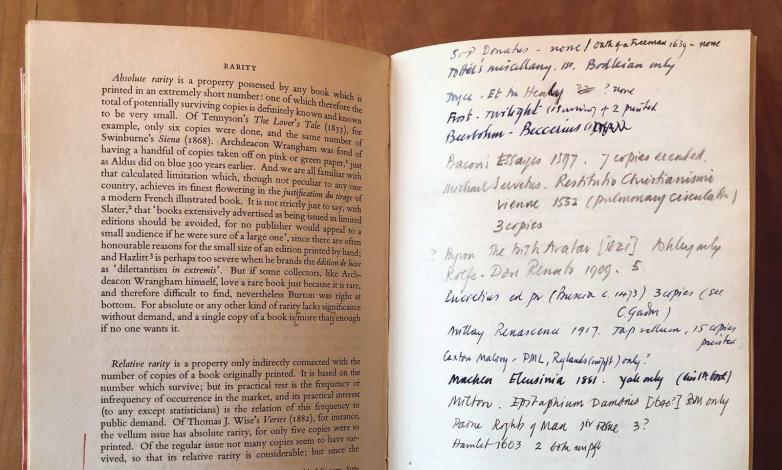 RARITY
Absolute rarity is a property possessed by any book which is
printed in an extremely short number: one of which therefore the
total of potential surviving copies is definitely known and known
to be very small. Of Tennyson's The Lover's Tale (1833), for
example, only six copies were done, and the same number of
Swinburne's Siena (1868). Archdeacon Wrangham was fond of
having a handful of copies taken off on pink or green paper,² just
as Aldus did on blue 300 years earlier. And we are all familiar with
that calculated limitation which, though not peculiar to any one
country, achieves its finest flowering in the justification du tirage of
a modern French illustrated book. It is not strictly just to say, with
Slater,² that 'books extensively advertised as being issued in limited
editions should be avoided, for no publisher would appeal to a
small audience if he were sure of a large one', since there are often
honourable reasons for the small size of an edition printed by hand;
and Hazlitt³ is perhaps too severe when he brands the édition de luxe
as 'dilettantism in extremis'. But if some collectors, like Arch-
deacon Wrangham himself, love a rare book just because it is rare,
and therefore difficult to find, nevertheless Burton was right at
bottom. For absolute or any other kind of rarity lacks significance
without demand, and a single copy of a book is more than enough
if no one wants it.
Relative rarity is a property only indirectly connected with the
number of copies of a book originally printed. It is based on the
number which survive; but its practical test is the frequency or
infrequency of occurrence in the market, and its practical interest
(to any except statisticians) is the relation of this frequency to
public demand. Of Thomas J. Wise's Verses (1882), for instance,
the vellum issue has absolute rarity, for only five copies were so
printed. Of the regular issue not many copies seem to have sur-
vived, so that its relative rarity is considerable; but since the
Donatus - none / Oath of a Freeman 1639 - none
Tottel's miscellany. 1st. Bodleian only
Joyce - Et tu Healy ? none
Frost - Twilight (1 survivor) of 2 printed
Beerbohm - Beccerius
Bacon's Essayes 1597. 7 copies recorded.
Michael Servetus. Restitutio Christianismi
Vienne 1532 (pulmonary circulation)
3 copies
? Byron The Ninth Avatar [1821] Ashley only
Rolfe - Don Renato 1909. 5.
Lucretius ed pr (Brescia c. 1473) 3 copies (see
C. Gordon)
Renascence 1917. Jap vellum, 15 copies
printed
Caxton Malory - PML, Rylands (impft) only?
Machen Eleusinia 1881. Yale only (his 1st book)
Milton. Epitaphium Damonis [1640?] BM only
Paine Rights of Man 1st issue 3?
Hamlet 1603 2 both impft